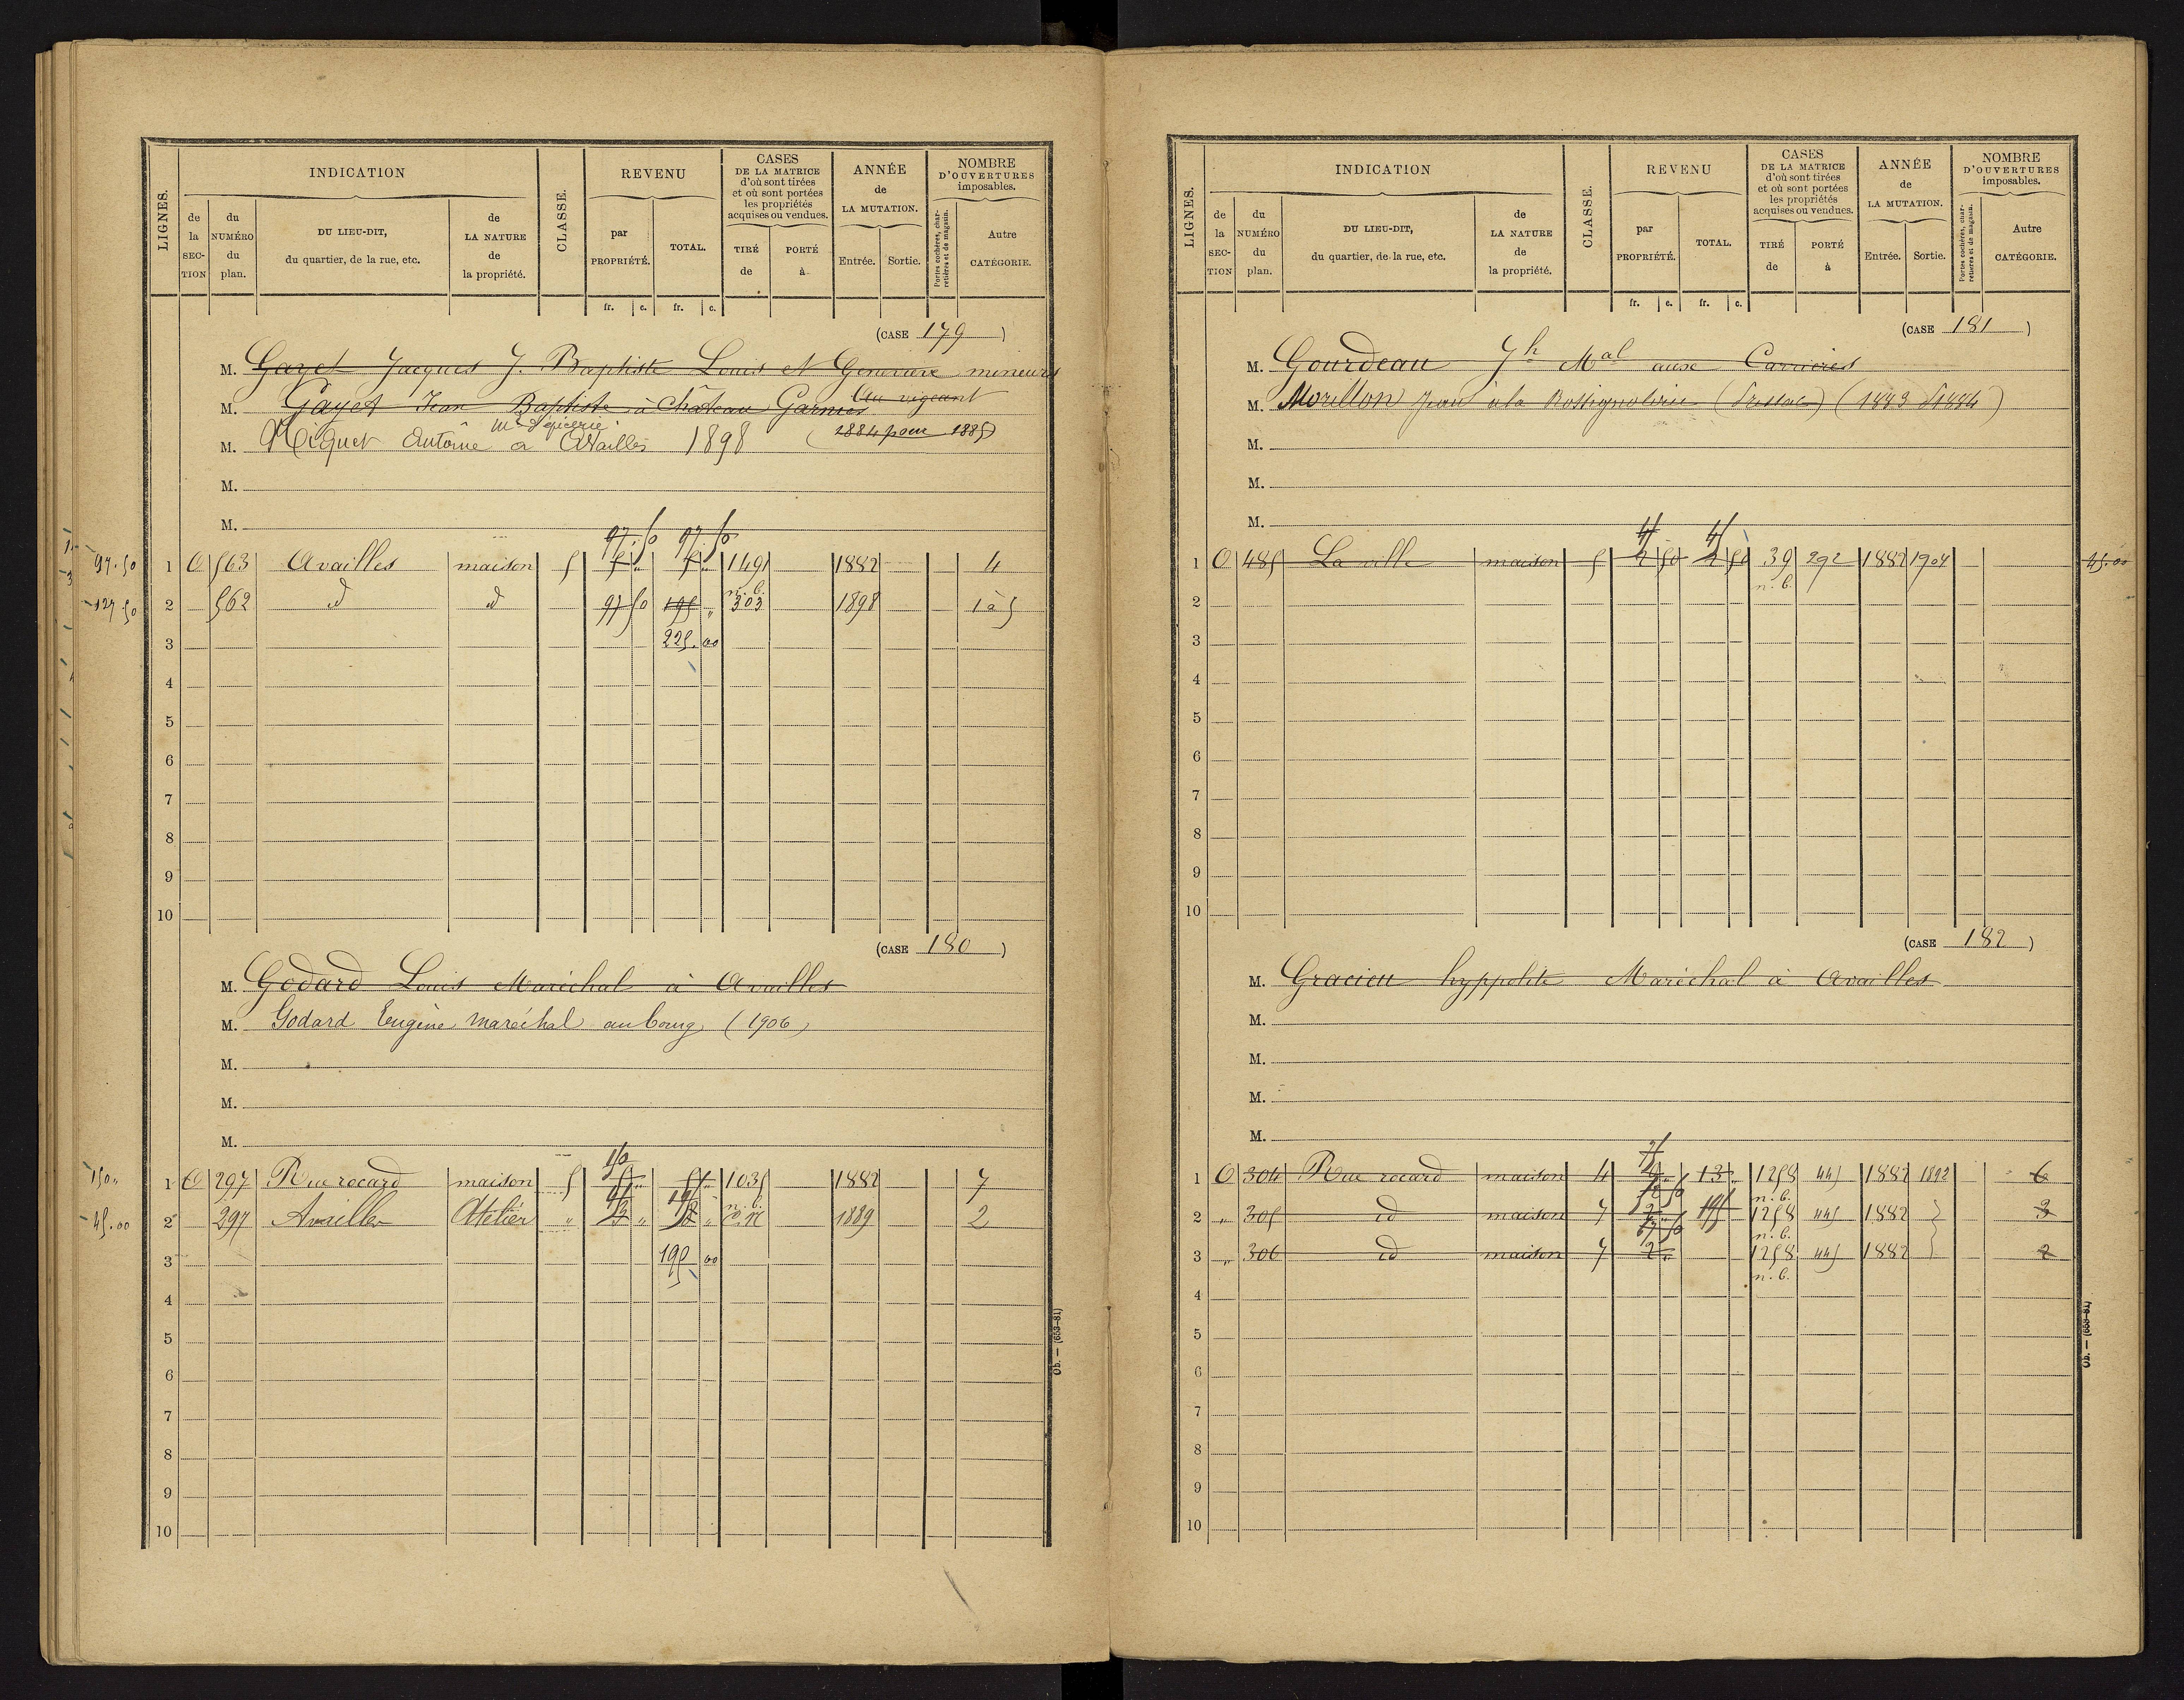 LIGNES.
INDICATION
de la SECTION
du NUMÉRO du plan.
DU LIEU-DIT, du quartier, de la rue, etc.
de LA NATURE de la propriété.
CLASSE.
REVENU
par PROPRIÉTÉ.
TOTAL.
fr. c. fr. c.
CASES DE LA MATRICE d'où sont tirées et où sont portées les propriétés acquises ou vendues.
TIRÉ de
PORTÉ à
ANNÉE de LA MUTATION.
Entrée. Sortie.
NOMBRE D'OUVERTURES imposables.
Portes cochères, charretières et de magasin.
Autre CATÉGORIE.
(CASE 179)
M. Gayet Jacques J. Baptiste Louis et Genevieve mineurs
M. Gayet Jean Baptiste à Château Garnier au vigeant
(1884 pour 1885)
md d'epicerie
M. Miquet Antoine a Availles 1898
M.
M.
97.50 97.50
97.50 1 O 563 Availles maison 5 149 1882 4
n. b.
127.50 2 562 id id 97 50 195 " 303 1898 1 à 5
3 225.00
4
5
6
7
8
9
10
(CASE 180)
M. Godard Louis Maréchal à Availles
M. Godard Eugène maréchal au bourg (1906)
M.
M.
M.
150
150" 1 O 297 Rue rocard maison 5 1035 1882 7
n. b.
45.00 2 297 Availles Atelier " 1889 2
3 195 00
4
5
6
7
8
9
10
Ob. — (653-81)
LIGNES.
INDICATION
de la SECTION
du NUMÉRO du plan.
DU LIEU-DIT, du quartier, de la rue, etc.
de LA NATURE de la propriété.
CLASSE.
REVENU
par PROPRIÉTÉ.
TOTAL.
fr. c. fr. c.
CASES DE LA MATRICE d'où sont tirées et où sont portées les propriétés acquises ou vendues.
TIRÉ de
PORTÉ à
ANNÉE de LA MUTATION.
Entrée. Sortie.
NOMBRE D'OUVERTURES imposables.
Portes cochères, charretières et de magasin.
Autre CATÉGORIE.
(CASE 181)
M. Gourdeau Jh Mal aux Carrieres
M. Morillon Jean à la Rossignolerie (Pressac) (1883 P 1884)
M.
M.
M.
45 45
1 O 485 La ville maison 5 2 50 2 50 39 292 1882 1904 45.00
n. b.
2
3
4
5
6
7
8
9
10
(CASE 182)
M. Gracieu hyppolite Maréchal à Availles
M.
M.
M.
M.
1 O 304 Rue rocard maison 4 13 1258 445 1882 1892 6
n. b.
2 " 305 id maison 7 195 1258 445 1882 3
n. b.
3 " 306 id maison 7 2 1258 445 1882 2
n. b.
4
5
6
7
8
9
10
Ob. — (653-81)